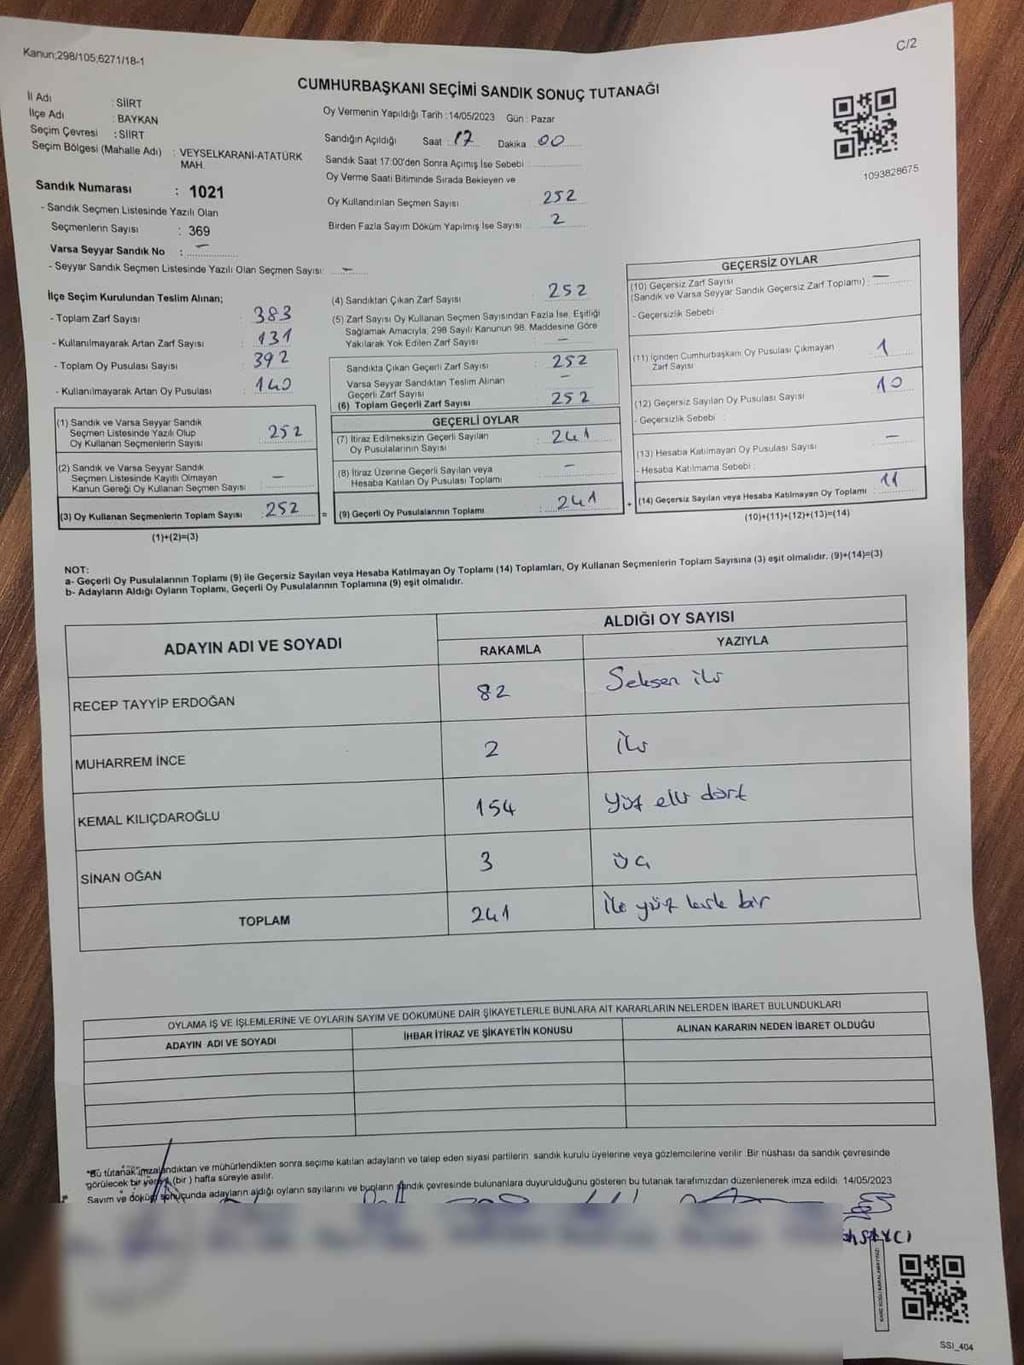 Kanun;298/105;6271/18-1
C/2
CUMHURBAŞKANI SEÇİMİ SANDIK SONUÇ TUTANAĞI
İl Adı : SİİRT
İlçe Adı : BAYKAN
Seçim Çevresi : SİİRT
Seçim Bölgesi (Mahalle Adı) : VEYSELKARANİ-ATATÜRK MAH.
Sandık Numarası : 1021
- Sandık Seçmen Listesinde Yazılı Olan
Seçmenlerin Sayısı : 369
Varsa Seyyar Sandık No : —
- Seyyar Sandık Seçmen Listesinde Yazılı Olan Seçmen Sayısı: —
Oy Vermenin Yapıldığı Tarih : 14/05/2023 Gün : Pazar
Sandığın Açıldığı Saat : 17 Dakika 00
Sandık Saat 17:00'den Sonra Açımış İse Sebebi
Oy Verme Saati Bitiminde Sırada Bekleyen ve
Oy Kullandırılan Seçmen Sayısı 252
Birden Fazla Sayım Döküm Yapılmış İse Sayısı 2
1093828675
İlçe Seçim Kurulundan Teslim Alınan;
- Toplam Zarf Sayısı : 383
- Kullanılmayarak Artan Zarf Sayısı : 131
- Toplam Oy Pusulası Sayısı : 392
- Kullanılmayarak Artan Oy Pusulası : 140
(1) Sandık ve Varsa Seyyar Sandık
Seçmen Listesinde Yazılı Olup
Oy Kullanan Seçmenlerin Sayısı : 252
(2) Sandık ve Varsa Seyyar Sandık
Seçmen Listesinde Kayıtlı Olmayan
Kanun Gereği Oy Kullanan Seçmen Sayısı : —
(3) Oy Kullanan Seçmenlerin Toplam Sayısı : 252
(1)+(2)=(3)
=
(4) Sandıktan Çıkan Zarf Sayısı : 252
(5) Zarf Sayısı Oy Kullanan Seçmen Sayısından Fazla İse, Eşitliği
Sağlamak Amacıyla, 298 Sayılı Kanunun 98. Maddesine Göre
Yakılarak Yok Edilen Zarf Sayısı : —
Sandıkta Çıkan Geçerli Zarf Sayısı : 252
Varsa Seyyar Sandıktan Teslim Alınan
Geçerli Zarf Sayısı : —
(6) Toplam Geçerli Zarf Sayısı : 252
GEÇERLİ OYLAR
(7) İtiraz Edilmeksizin Geçerli Sayılan
Oy Pusulalarının Sayısı : 241
(8) İtiraz Üzerine Geçerli Sayılan veya
Hesaba Katılan Oy Pusulası Toplamı : —
(9) Geçerli Oy Pusulalarının Toplamı : 241
+
GEÇERSİZ OYLAR
(10) Geçersiz Zarf Sayısı
(Sandık ve Varsa Seyyar Sandık Geçersiz Zarf Toplamı) : —
- Geçersizlik Sebebi :
(11) İçinden Cumhurbaşkanı Oy Pusulası Çıkmayan
Zarf Sayısı 1
(12) Geçersiz Sayılan Oy Pusulası Sayısı 10
- Geçersizlik Sebebi :
(13) Hesaba Katılmayan Oy Pusulası Sayısı —
- Hesaba Katılmama Sebebi :
(14) Geçersiz Sayılan veya Hesaba Katılmayan Oy Toplamı : 11
(10)+(11)+(12)+(13)=(14)
NOT:
a- Geçerli Oy Pusulalarının Toplamı (9) ile Geçersiz Sayılan veya Hesaba Katılmayan Oy Toplamı (14) Toplamları, Oy Kullanan Seçmenlerin Toplam Sayısına (3) eşit olmalıdır. (9)+(14)=(3)
b- Adayların Aldığı Oyların Toplamı, Geçerli Oy Pusulalarının Toplamına (9) eşit olmalıdır.
ADAYIN ADI VE SOYADI
ALDIĞI OY SAYISI
RAKAMLA YAZIYLA
RECEP TAYYİP ERDOĞAN 82 Seksen iki
MUHARREM İNCE 2 iki
KEMAL KILIÇDAROĞLU 154 Yüz elli dört
SİNAN OĞAN 3 üç
TOPLAM 241 iki yüz kırk bir
OYLAMA İŞ VE İŞLEMLERİNE VE OYLARIN SAYIM VE DÖKÜMÜNE DAİR ŞİKAYETLERLE BUNLARA AİT KARARLARIN NELERDEN İBARET BULUNDUKLARI
ADAYIN ADI VE SOYADI İHBAR İTİRAZ VE ŞİKAYETİN KONUSU ALINAN KARARIN NEDEN İBARET OLDUĞU
*Bu tutanak imzalandıktan ve mühürlendikten sonra seçime katılan adayların ve talep eden siyasi partilerin sandık kurulu üyelerine veya gözlemcilerine verilir. Bir nüshası da sandık çevresinde
görülecek bir yere (bir) hafta süreyle asılır.
Sayım ve döküm sonucunda adayların aldığı oyların sayılarını ve bunların sandık çevresinde bulunanlara duyurulduğunu gösteren bu tutanak tarafımızdan düzenlenerek imza edildi. 14/05/2023
SSI_404